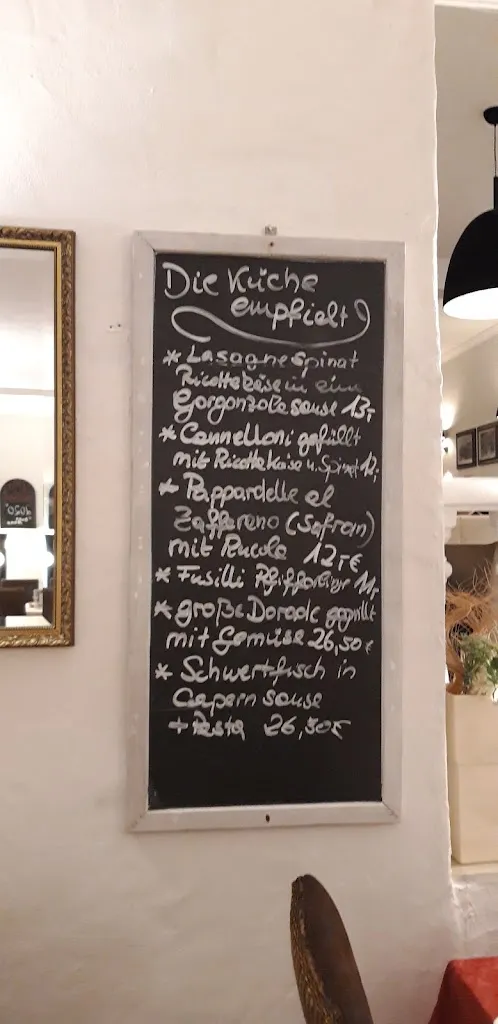 Die Küche
empfielt
* Lasagne Spinat
Ricottakäse in eine
Gorgonzola sause 13,-
* Cannelloni gefüllt
mit Ricottakäse u. Spinat
* Pappardelle al
Zaffarano (Safran)
mit Rucola 12,-€
* Fusilli Pfifferlinge
* große Dorade gegrillt
mit Gemüse 26,50 €
* Schwertfisch in
Capern sause
+ Pasta 26,50€